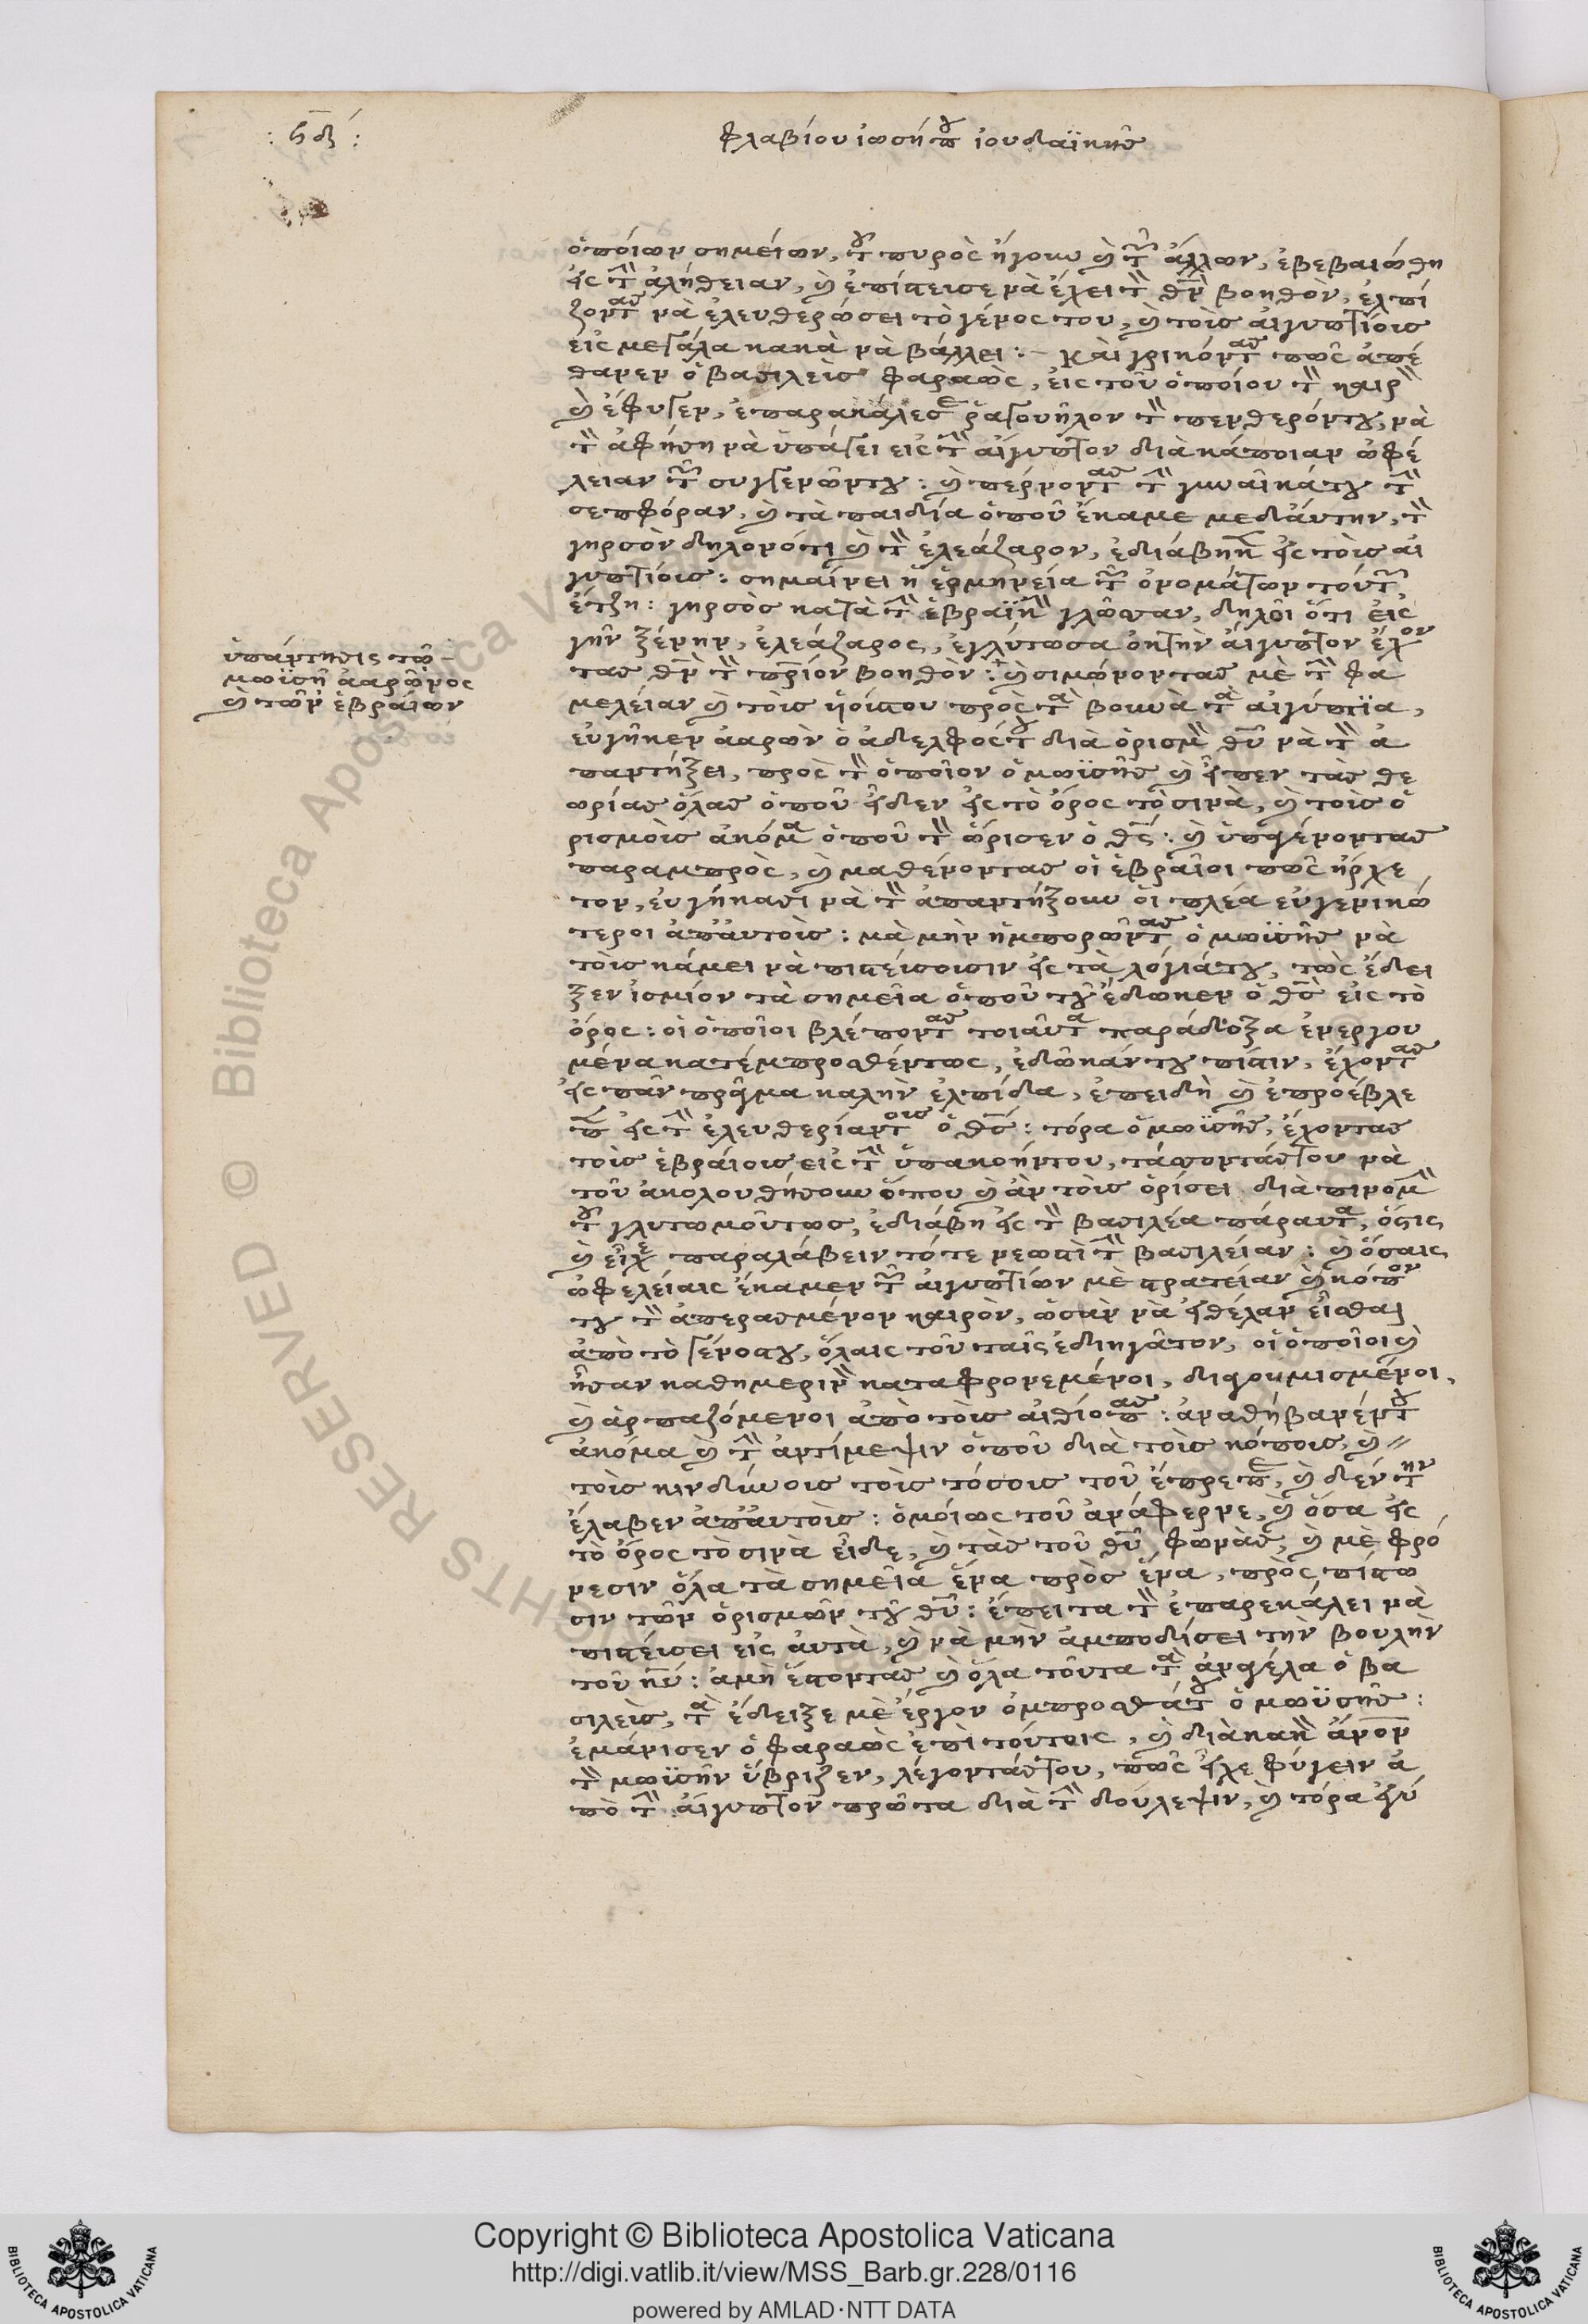 : ϟδ :
φλαβίου ἰωσήπου ἰουδαϊκῆς
ὁποίων σημείων, τοῦ πυρὸς ἤγουν καὶ τῶν ἄλλων, ἐβεβαιώθη
εἰς τὴν ἀλήθειαν, καὶ ἐπίστεισε νὰ ἔχει τὸν θεὸν βοηθὸν, ἐλπί
ζοντας νὰ ἐλευθερώσει τὸ γένος του, καὶ τοὶς αἰγυπτίοις
εἰς μεγάλα κακὰ νὰ βάλλει :– καὶ γρικόντας πῶς ἀπέ
θανεν ὁ βασιλεὶς φαραὼς, εἰς τοῦ ὁποίου τὸν καιρὸν
καὶ ἔφυγεν, ἐπαρακάλεσε ῥαγουῆλον τὸν πενθερόντου, νὰ
τὸν ἀφήση νὰ ὑπάγει εἰς τὴν αἴγυπτον διὰ κάποιαν ὠφέ
λειαν τῶν συγγενῶντου : καὶ πέρνοντας τὴν γυναῖκάτου τὴν
σεπφόραν, καὶ τὰ παιδία ὁποῦ ἔκαμε μεδἄυτην, τὸν
γηρσὸν δηλονότι καὶ τὸν ἐλεάζαρον, ἐδιάβηκεν εἰς τοὶς αἰ
γυπτίοις : σημαίνει ἡ ἑρμηνεία τῶν ὀνομάτων τούτων,
ἔτζη : γηρσὸς κατὰ τὴν ἑβραϊκὴν γλῶσσαν, δηλοῖ ὅτι εἰς
γῆν ξένην, ἐλεάζαρος, ἐγλύτωσα ὀκτὴν αἴγυπτον ἔχον
τας θεὸν τὸν πατρῷον βοηθὸν : καὶ σιμώνοντας μὲ τὴν φα
μελείαν καὶ τοὶς ἠοίπου πρὸς τὰ βουνὰ τὰ αἰγύπτϊα,
εὐγῆκεν ἀαρὼν ὁ ἀδελφόςτου διὰ ὁρισμὸν θεοῦ νὰ τὸν ἀ
παντήξει, πρὸς τὸν ὁποῖον ὁ μωϋσῆς καὶ εἶπεν τὰς θε
ωρίας ὅλας ὁποῦ εἶδεν εἰς τὸ ὄρος τὸ σινὰ, καὶ τοὶς ὁ
ρισμοὶς ἀκόμα ὁποῦ τὸν ὥρισεν ὁ θεός : καὶ ὑπαγένοντας
παραμπρὸς, καὶ μαθένοντας οἱ ἑβραῖοι πῶς ἤρχε
τον, ἐυγήκασι νὰ τὸν ἀπαντήξουν ὅι πλέα εὐγενικώ
τεροι ἀπἄυτοὶς : μὰ μὴν ἠμπορῶντας ὁ μωϋσῆς νὰ
τοὶς κάμει νὰ πιστεύσουσιν εἰς τὰ λόγιάτου, τὼς ἔδει
ξεν ἰσμίον τὰ σημεῖα ὁποῦ τοῦ ἔδωκεν ὁ θεὸς εἰς τὸ
ὄρος : οἱ ὁποῖοι βλέποντας τοιαῦτα παράδοξα ἐνεργου
μένα κατέμπροσθέντως, ἐδῶκάντου πίστιν, ἔχοντας
εἰς πᾶν πρᾶγμα καλὴν ἐλπίδα, ἐπειδὴ καὶ ἐπροέβλε
πεν εἰς τὴν ἐλευθερίαντοις ὁ θεὸς : τόρα ὁ μωϋσῆς, ἔχοντας
τοὶς ἑβραίοις εἰς τὴν ὑπακοήντου, τάσσοντάςτου νὰ
τοῦ ἀκολουθήσουν ὅπου καὶ ἂν τοὶς ὁρίσει διὰ πινομὴν
τοῦ γλυτωμοῦντως, ἐδιάβη εἰς τὸν βασιλέα πάραυτα, ὅστις
καὶ εἶχε παραλάβειν τότε νεωστὶ τὴν βασιλείαν : καὶ ὅσαις
ὠφελείαις ἔκαμεν τῶν αἰγυπτίων μὲ στρατείαν καὶ κόπον
του τὸν ἀπερασμένον καιρὸν, ὡσὰν νὰ εἰθέλαν εἶσθαι
ἀπὸ τὸ γένοςτου, ὅλαις τοῦ ταῖς ἐδιηγᾶτον, οἱ ὁποῖοι καὶ
ἦσαν καθημερινὸν καταφρονεμένοι, διαγουμισμένοι,
καὶ ἁρπαζόμενοι ἀπὸ τοὶς αἰθίοπας : ἀναθήβανέντου
ἀκόμα καὶ τὴν ἀντίμεψιν ὁποῦ διὰ τοὶς κόποις, καὶ
τοὶς κινδύνοις τοὶς τόσοις τοῦ ἔπρεπε, καὶ δέν την
ἔλαβεν ἀπἄυτοὶς : ὁμοίως τοῦ ἀνάφερνε, καὶ ὅσα εἰς
τὸ ὄρος τὸ σινὰ εἶδε, καὶ τὰς τοῦ θεοῦ φωνὰς, καὶ μὲ φρό
νεσιν ὅλα τὰ σημεῖα ἕνα πρὸς ἕνα, πρὸς πίστω
σιν τῶν ὁρισμῶν τοῦ θεοῦ : ἔπειτα τὸν ἐπαρεκάλει νὰ
πιστεύσει εἰς ἀυτὰ, καὶ νὰ μὴν ἀμποδίσει τὴν βουλὴν
τοῦ κυρίου : ἀμὴ ἔστοντας καὶ ὅλα τοῦτα τὰ ἀναγέλα ὁ βα
σιλεὶς, τὰ ἔδειξε μὲ ἔργον ὀμπροσθάτου ὁ μωϋσῆς :
ἐμάνισεν ὁ φαραὼς ἐπὶ τούτοις, καὶ διὰ κακὸν ἄνθρωπον
τὸν μωϋσῆν ὕβριζεν, λέγοντάςτου, πῶς εἶχε φύγειν ἀ
πὸ τὴν αἴγυπτον πρῶτα διὰ τὴν δούλεψιν, καὶ τόρα εὑ
ὑπάντησις τῶ
μωϊσῆ ἀαρῶνος
καὶ τῶν ἑβραίων
Copyright © Biblioteca Apostolica Vaticana
http://digi.vatlib.it/view/MSS_Barb.gr.228/0116
powered by AMLAD·NTT DATA
BIBLIOTECA APOSTOLICA VATICANA
BIBLIOTECA APOSTOLICA VATICANA